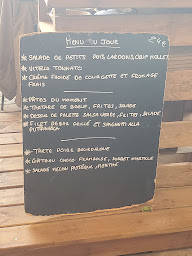 MENU DU JOUR
24€
* SALADE DE PETITS POIS, LARDONS, OEUF MOLLET
* VITELLO TONNATO
* CRÈME FROIDE DE COURGETTE ET FROMAGE
FRAIS
* PÂTES DU MOMENT
* TARTARE DE BOEUF, FRITES, SALADE
* DESSUS DE PALETTE SALSA VERDE, FRITES, SALADE
* FILET DE BAR GRILLÉ ET SPAGHETTI ALLA
PUTTANESCA
* TARTE POIRE BOURDALOUE
* GÂTEAU CHOCO FRAMBOISE, SORBET MYRTILLE
* SALADE MELON PASTÈQUE, MENTHE